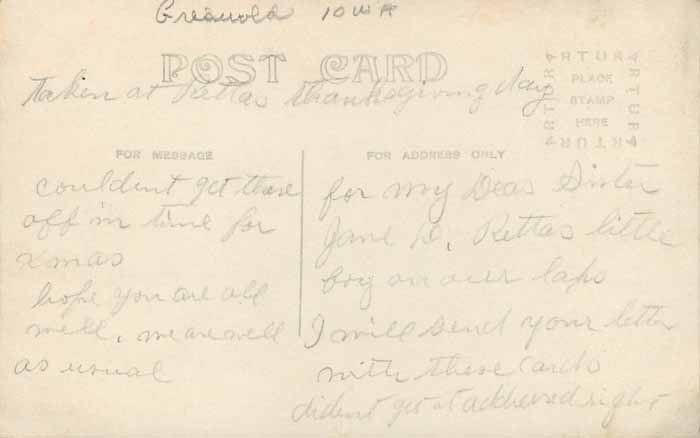 Griswold Iowa
POST CARD
taken at Rettas thanksgiving day
ARTURA
ARTURA
PLACE
STAMP
HERE
ARTURA
ARTURA
FOR MESSAGE
couldent get these
off in time for
xmas
hope you are all
well, we are well
as usual
FOR ADDRESS ONLY
for my Dear Sister
Jane D. Rettas little
boy on our laps
I will send your letter
with these cards
dident get it addressed right